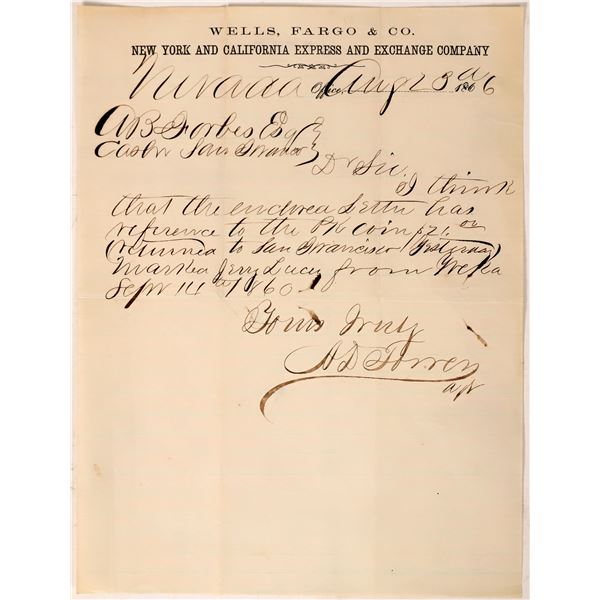 WELLS, FARGO & CO.
NEW YORK AND CALIFORNIA EXPRESS AND EXCHANGE COMPANY
Nevada Office, Aug 23d 1866
AB Forbes Esq
Cashr San Franco
Dr Sir.
I think
that the enclosed Letter has
reference to the Pk coin $21.00
(returned to San Francisco
Marked Jerry Lucey from Yreka
Sept 14th 1860
Yours Truly
AD Tower
agt